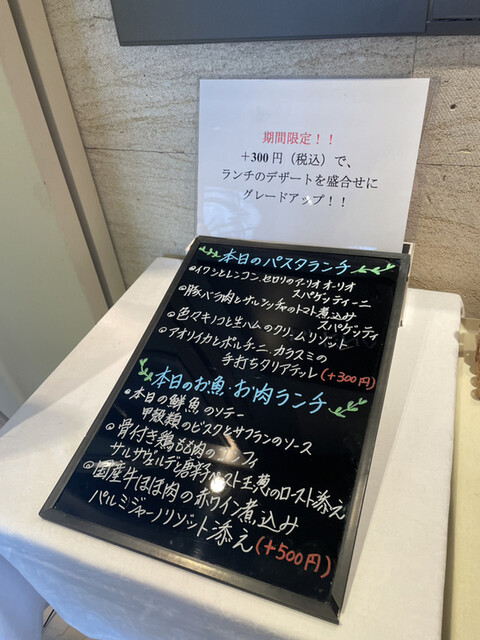 期間限定！！
＋300円（税込）で、
ランチのデザートを盛合せに
グレードアップ！！
本日のパスタランチ
◎イワシとレンコン、セロリのアーリオオーリオ
スパゲッティーニ
◎豚バラ肉とサルシッチャのトマト煮込み
スパゲッティ
◎色々キノコと生ハムのクリームリゾット
◎アオリイカとポルチーニ、カラスミの
手打ちタリアテッレ(+300円)
本日のお魚・お肉ランチ
◎本日の鮮魚のソテー
甲殻類のビスクとサフランのソース
◎骨付き鶏もも肉のコンフィ
サルサヴェルデと唐辛子ペースト 玉葱のロースト添え
◎国産牛ほほ肉の赤ワイン煮込み
パルミジャーノリゾット添え(+500円)